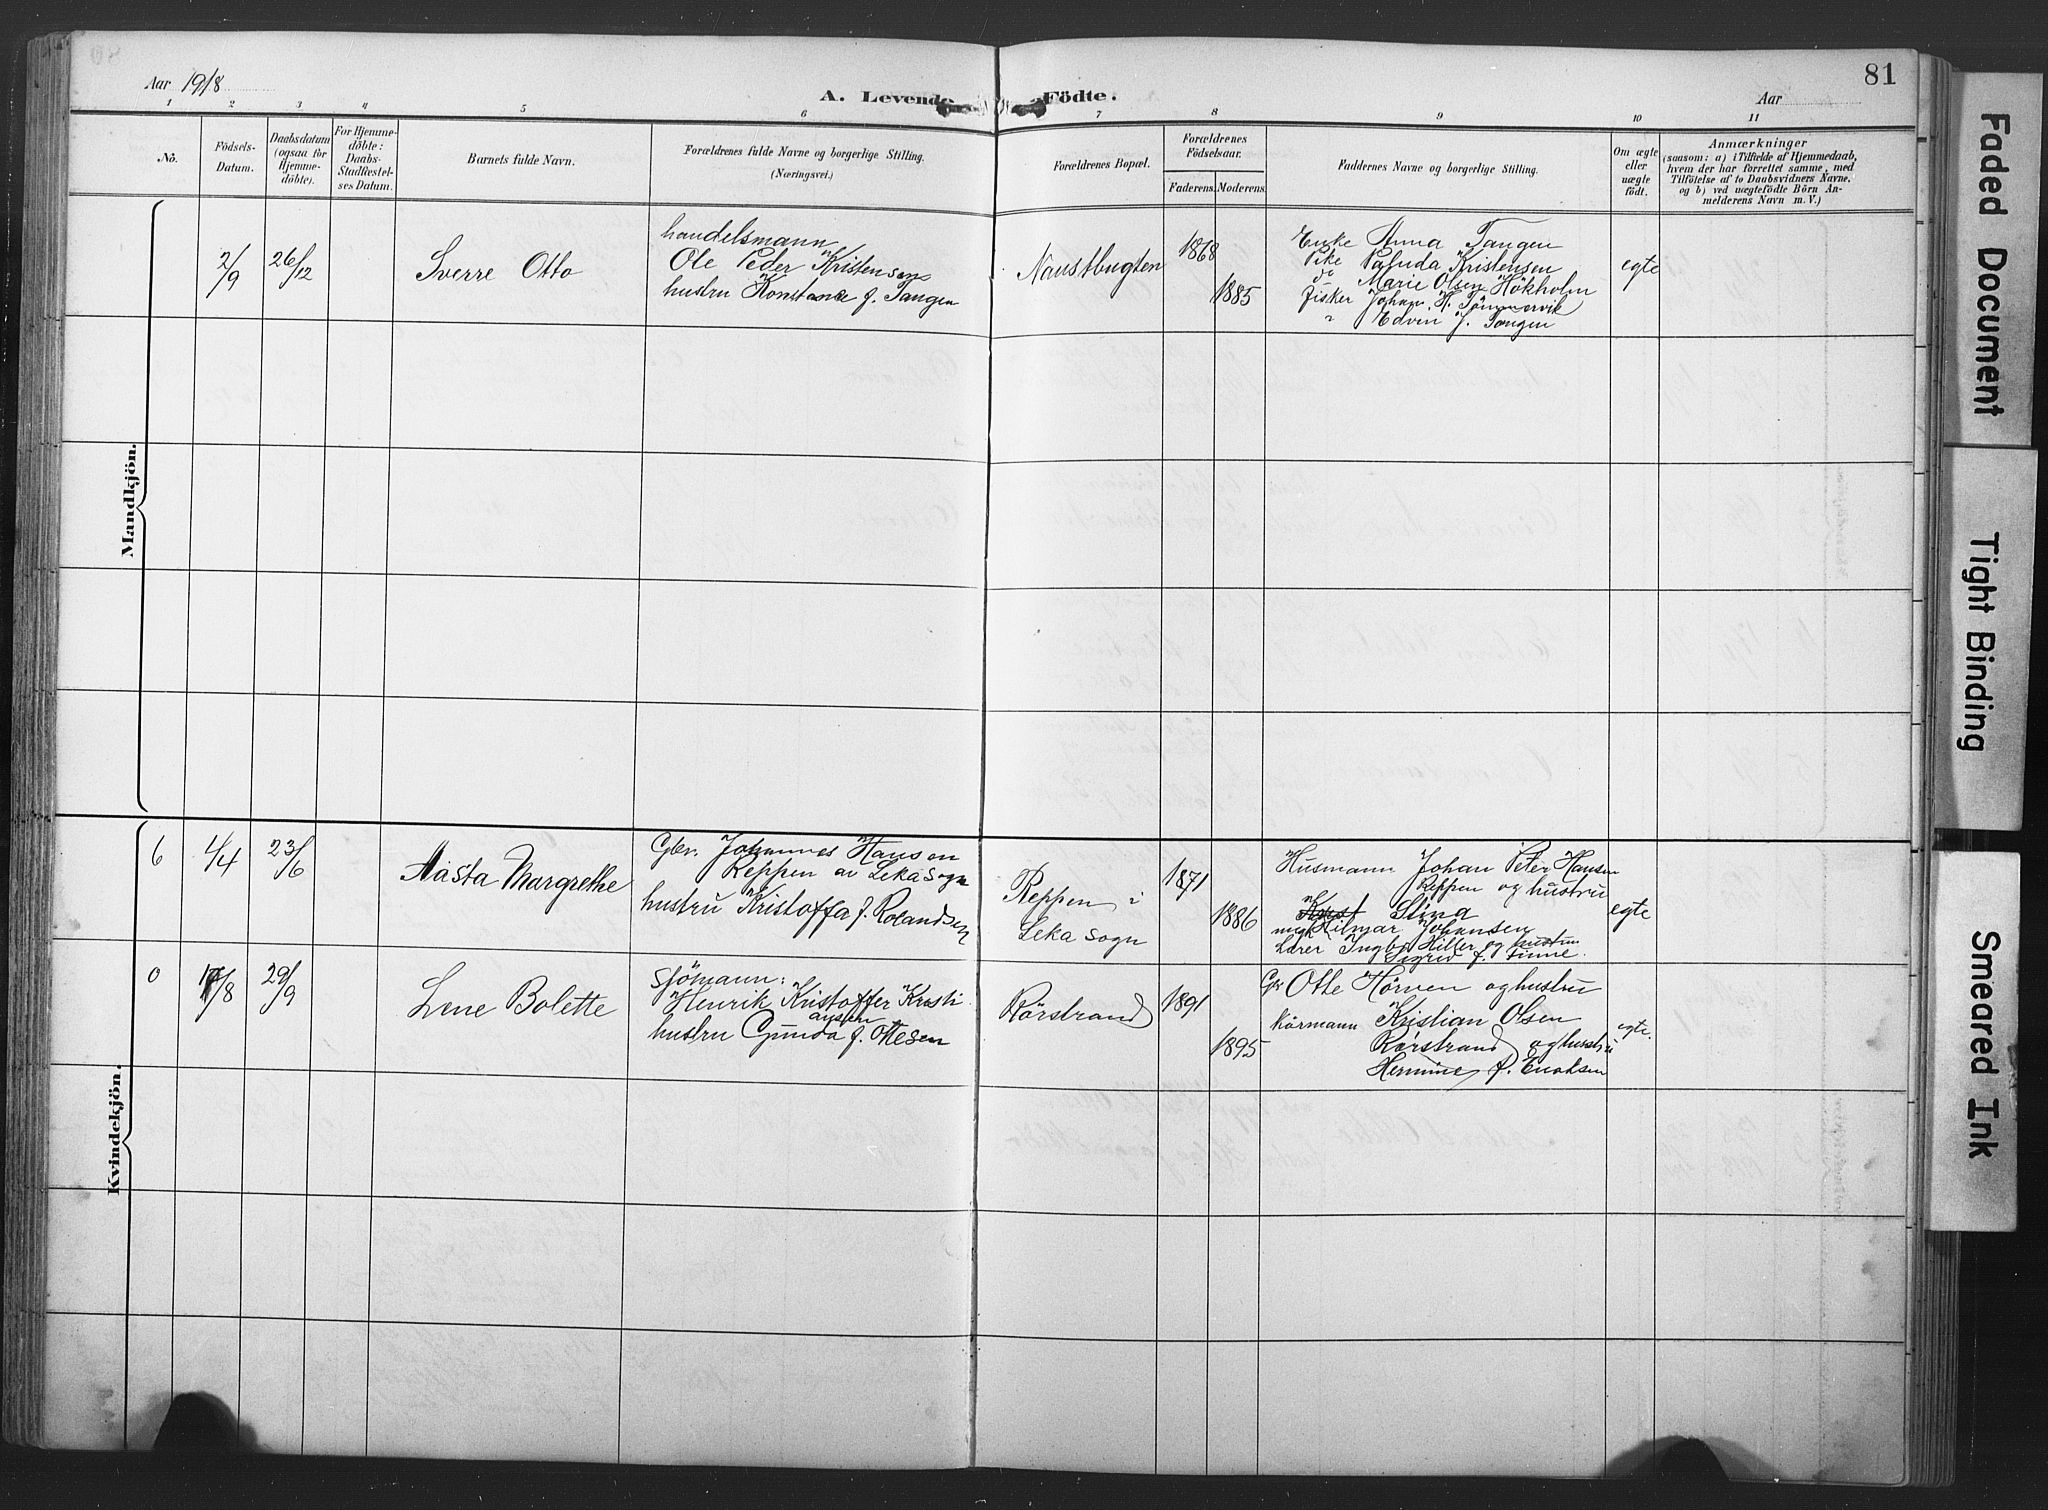 Aar 1918
A. Levende Födte.
81
Aar
1 2 3 4 5 6 7 8 9 10 11
No.
Födsels-Datum.
Daabsdatum (ogsaa for Hjemme-döbte).
For Hjemme-döbte: Daabs-Stadfæstel-ses Datum.
Barnets fulde Navn.
Forældrenes fulde Navne og borgerlige Stilling.
(Næringsvei.)
Forældrenes Bopæl.
Forældrenes Födselsaar.
Faderens. Moderens.
Faddernes Navne og borgerlige Stilling.
Om ægte eller uægte födt.
Anmærkninger
(saasom: a) i Tilfælde af Hjemmedaab,
hvem der har forrettet samme, med
Tilföielse af to Daabsvidners Navne,
og b) ved uægtefödte Börn An-
melderens Navn m. V.)
Mandkjön.
2/9 26/12
Sverre Otto
handelsmann
Ole Peder Kristensen
hustru Konstance f. Tangen
Naustbugten
1868
1885
Enke Anna Tangen
Pike Kristensen
do Marie Olsen Hökholm
Fisker Johan H. Tömmervik
" Edvin J. Tangen
egte
Kvindekjön.
6 1/4 23/6
Aasta Margrethe
Gbr. Johannes Hansen
Reppen av Leka sogn
hustru Kristoffa f. Rolandsen
Reppen i
Leka sogn
1871
1886
Husmann Johan Peter Hansen
Reppen og hustru
Stina
Hilmar Johansen
Lærer Ingb. Hiller og hustru
Sigrid f. Finne.
egte
0 17/8 29/9
Lene Bolette
Sjömann:
Henrik Kristoffer Kristi
ansen
hustru Gunda f. Ottesen
Rörstrand
1891
1895
Gbr Otte Hörven og hustru
Kårmann Kristian Olsen
Rørstrand og hustru
Hermine f. Enoksen
egte.
Faded Document
Tight Binding
Smeared Ink